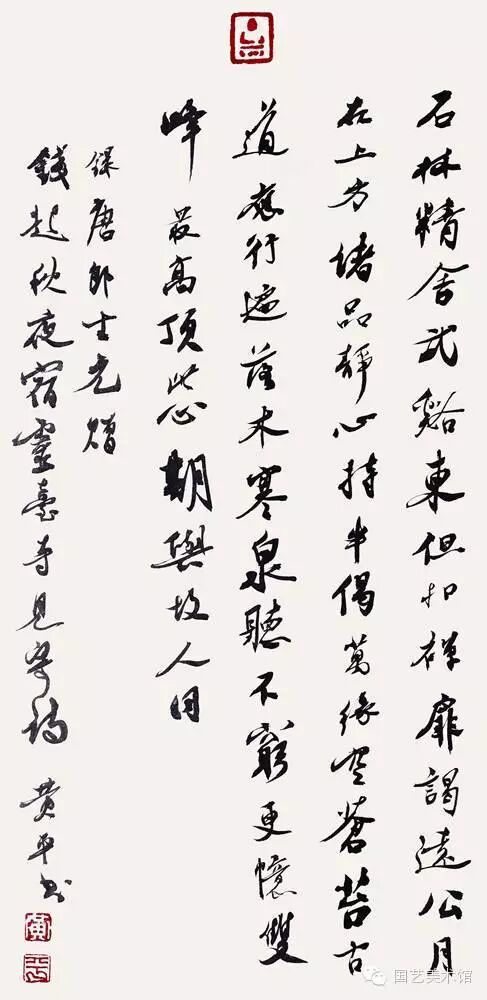 石林精舍武谿東但扣禪扉謁遠公月
在上方諸品靜心持半偈萬緣空蒼苔古
道應行遍落木寒泉聽不窮更憶雙
峰最高頂此心期與故人同
録唐郎士元贈
錢起秋夜宿靈臺寺見寄詩 黄平书
国艺美术馆